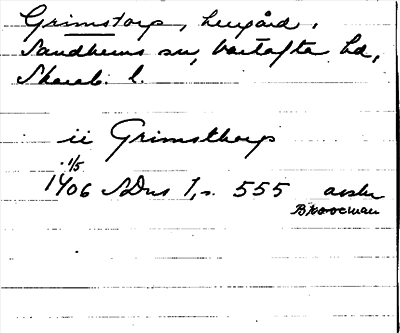 Grimstorp, herrgård,
Sandhems sn, Vartofta hd,
Skarab. l.
ii Grimsthorp
1/5
1406 SDns 1, s. 555 avskr